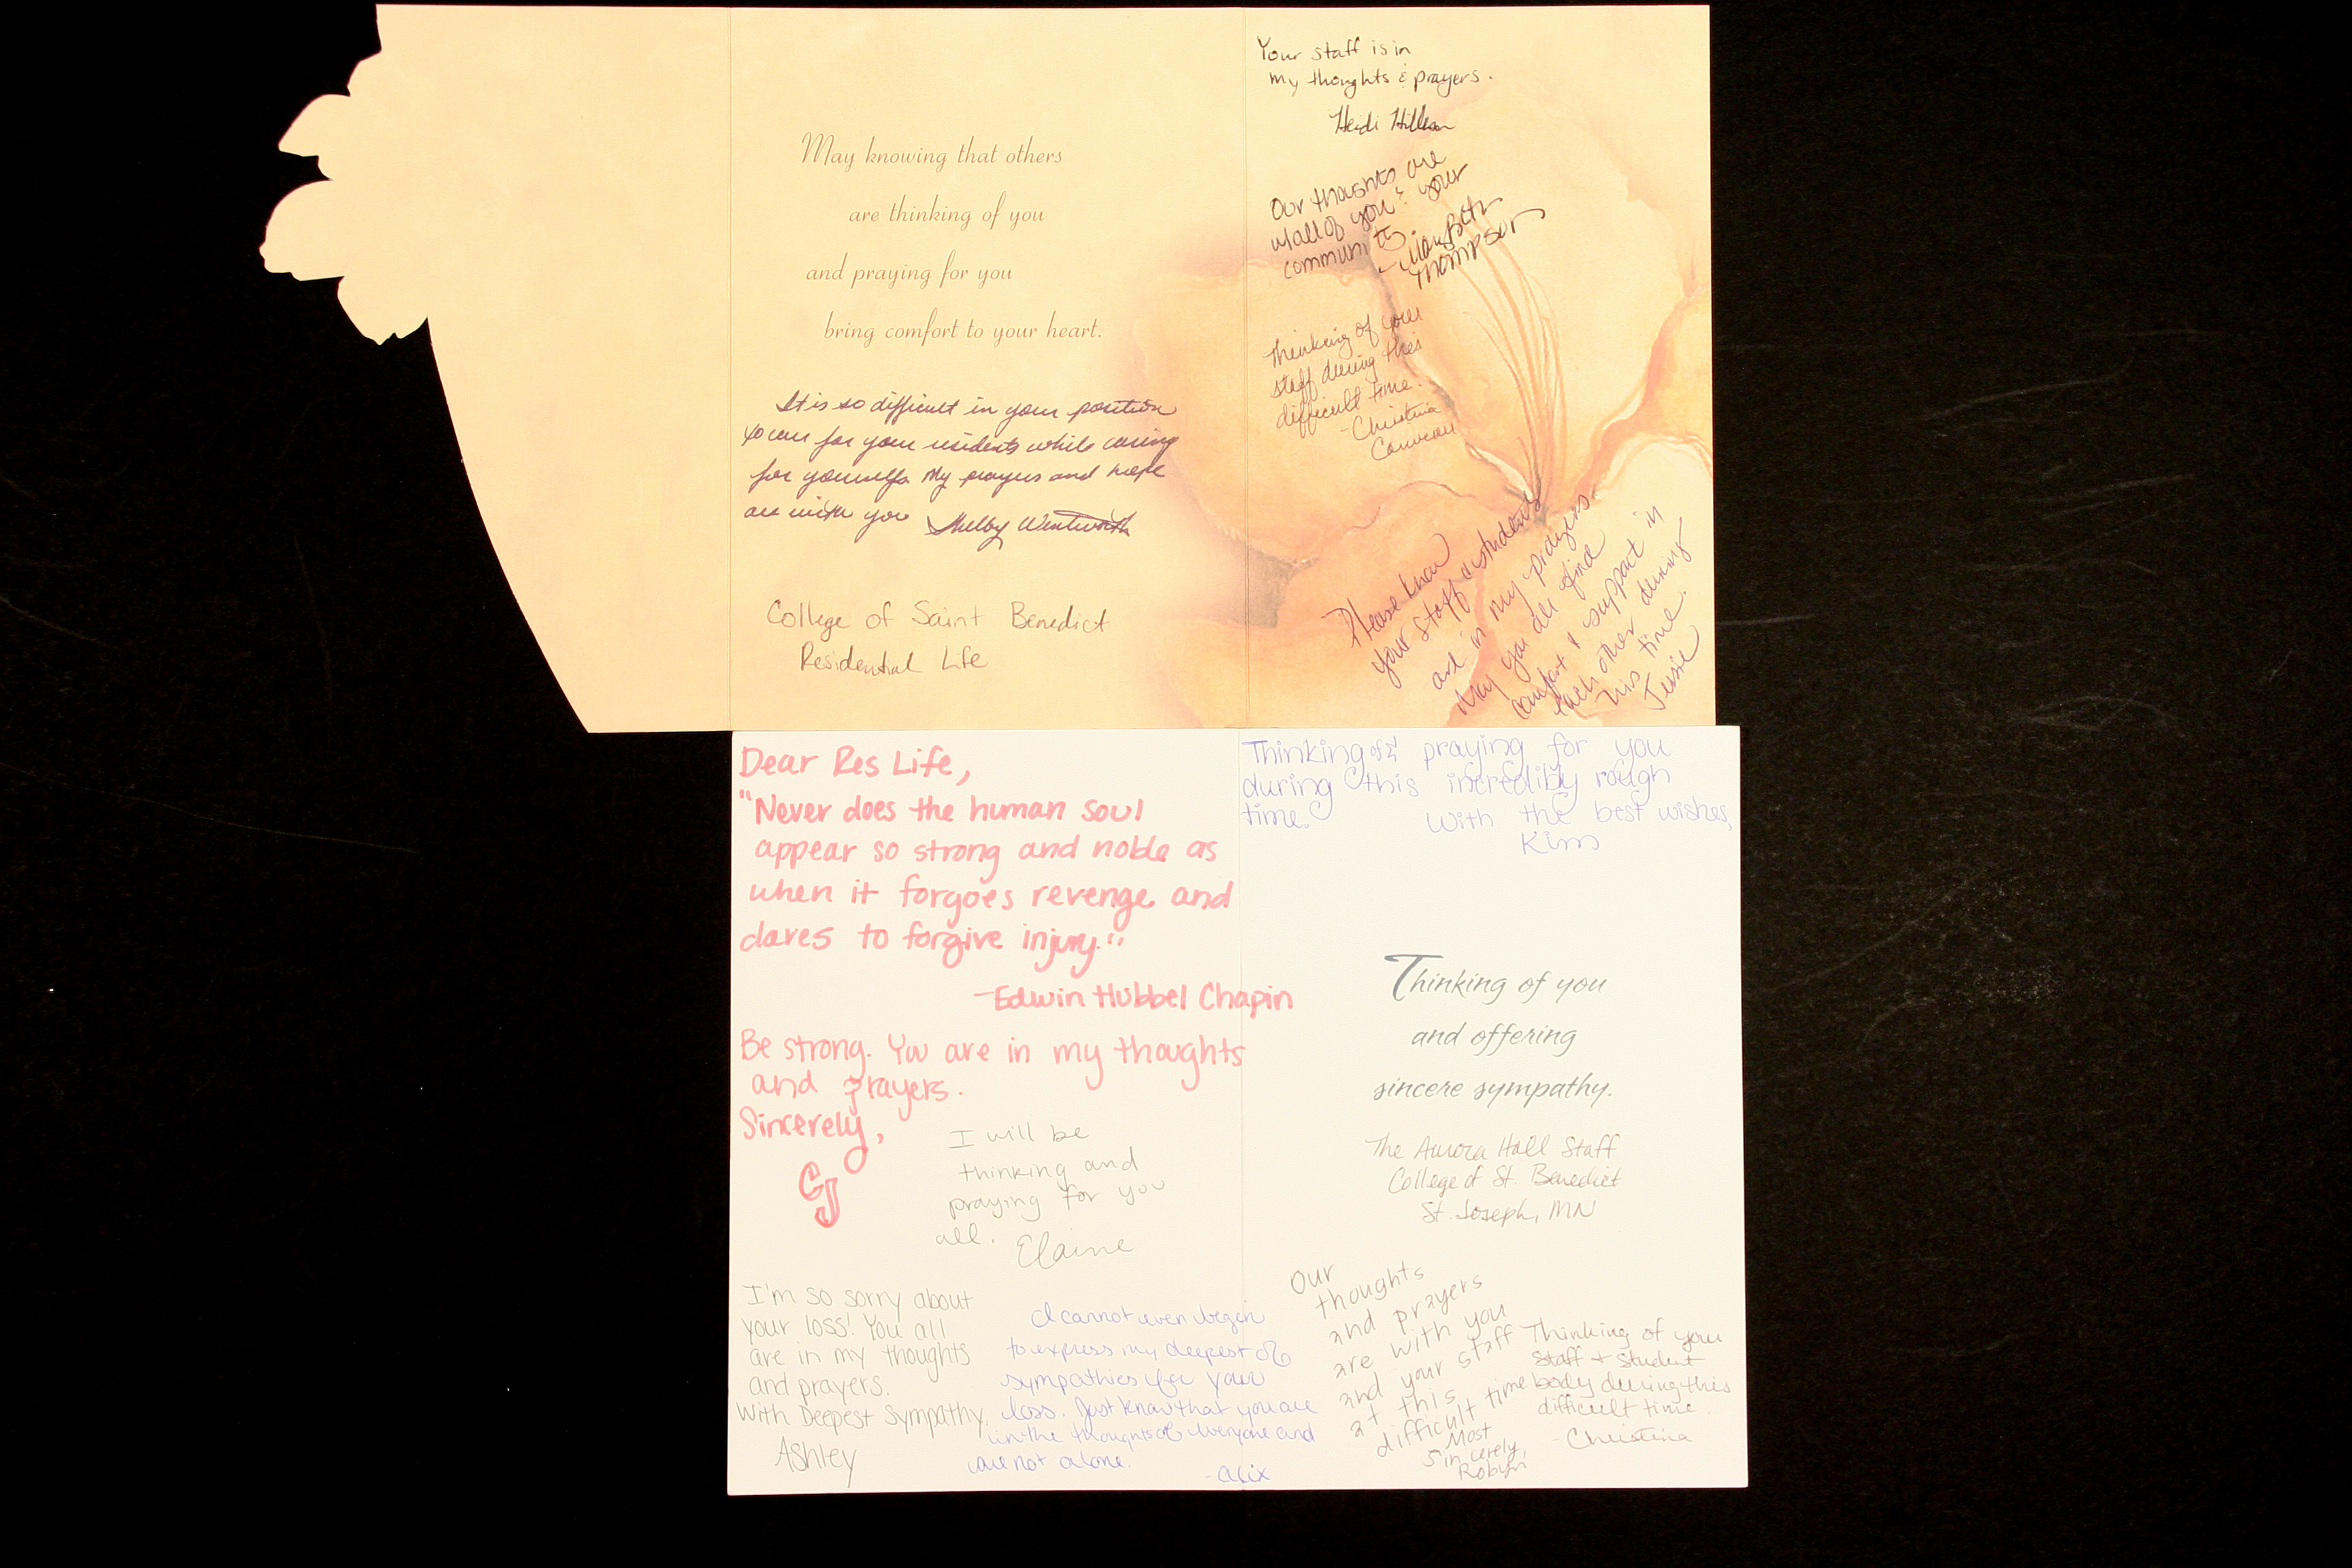 May knowing that others
are thinking of you
and praying for you
bring comfort to your heart.
It is so difficult in your position
to care for your residents while caring
for yourselfs. My prayers and hope
are with you Shelby Wentworth
College of Saint Benedict
Residential Life
Your staff is in
my thoughts & prayers.
Heidi
Our thoughts are
w/all of you & your
community.
- MaryBeth
Thompson
Thinking of your
staff during this
difficult time.
- Christina
Please know
your staff & students
are in my prayers.
May you all find
comfort & support in
each other during
this time.
Jessie
Dear Res Life,
"Never does the human soul
appear so strong and noble as
when it forgoes revenge and
dares to forgive injury."
-Edwin Hubbel Chapin
Be strong. You are in my thoughts
and prayers.
Sincerely,
CJ
I will be
thinking and
praying for you
all. Elaine
I'm so sorry about
your loss! You all
are in my thoughts
and prayers.
With Deepest Sympathy,
Ashley
I cannot even begin
to express my deepest of
sympathies for your
loss. Just know that you are
in the thoughts of everyone and
are not alone.
- Alix
Thinking of & praying for you
during this incredibly rough
time. With the best wishes,
Kim
Thinking of you
and offering
sincere sympathy.
The Aurora Hall Staff
College of St. Benedict
St. Joseph, MN
Our
thoughts
and prayers
are with you
and your staff
at this
difficult time
Most
Sincerely,
Robyn
Thinking of your
staff + student
body during this
difficult time.
- Christina